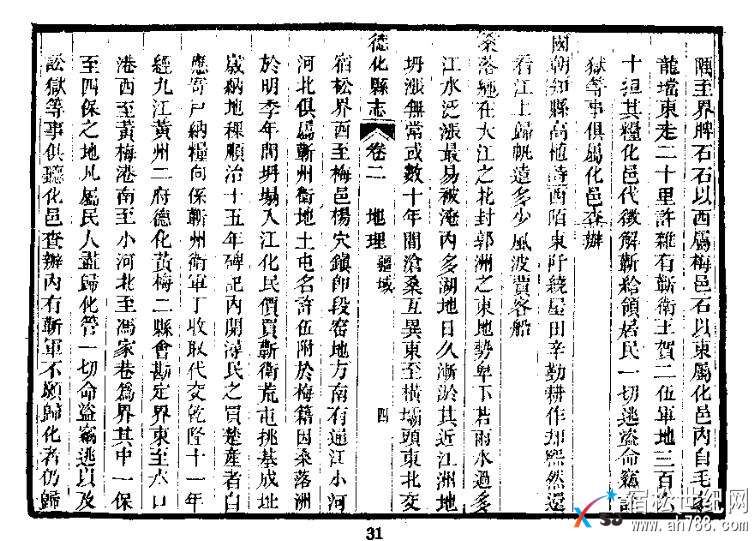 隅至界牌石石以西屬梅邑石以東屬化邑內自毛家
龍壋東走二十里許雜有蘄衛王賀二伍軍地三百六
十担其糧化邑代徵解蘄給領居民一切逃盜命竊訟
獄等事俱屬化邑查辦
國朝知縣高植詩西陌東阡繞屋田辛勤耕作却熙然還
看江上歸帆遠多少風波賈客船
桑落洲在大江之北封郭洲之東地勢卑下若雨水過多
江水泛漲最易被淹內多湖地日久漸淤其近江洲地
坍漲無常或數十年間滄桑互異東至橫壩頭東北交
德化縣志 卷二 地理 疆域 四
宿松界西至梅邑楊穴鎮即段窑地方南有通江小河
河北俱屬蘄州衛地土屯名許伍附於梅籍因桑落洲
於明季年間坍塌入江化民價買蘄衛荒屯挑基成址
歲納地稞順治十五年碑記內開潯民之買楚產者白
應寄戶納糧向係蘄州衛軍丁收取代交乾隆十一年
經九江黃州二府德化黃梅二縣會勘定界東至六口
港西至黃梅港南至小河北至馮家巷為界其中一保
至四保之地凡屬民人盡歸化管一切命盜竊逃以及
訟獄等事俱聽化邑查辦內有蘄軍不願歸化者仍歸
31
宿松世纪网
www.ah788.com